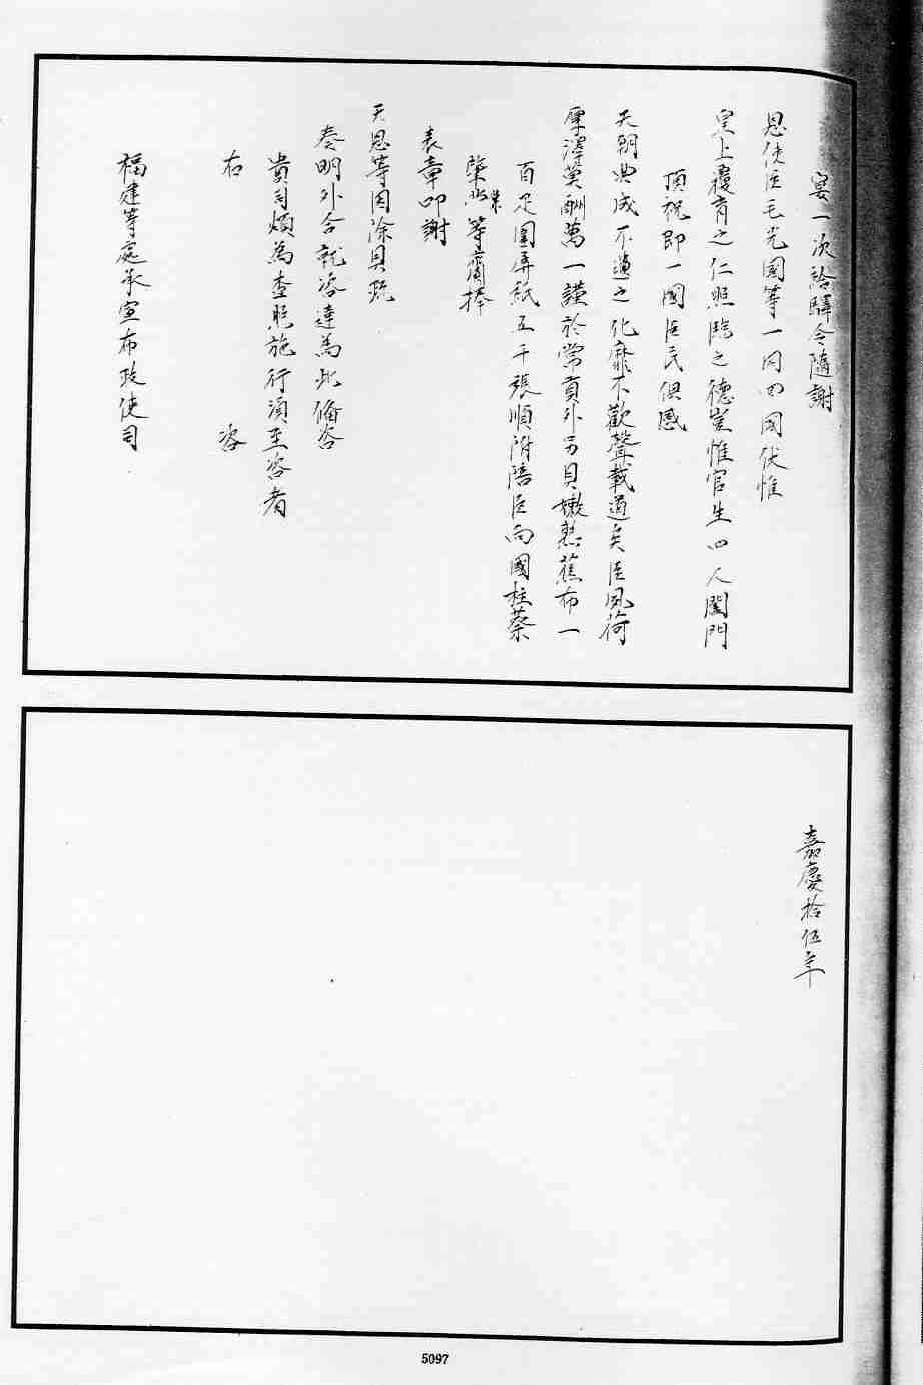 宴一次給驛令隨謝
恩使臣毛光國等一同回國伏惟
皇上覆育之仁照臨之德豈惟官生四人闔門
頂祝即一國臣民俱感
天朝典成不遺之化靡不歡聲載道矣臣夙荷
厚澤莫酬萬一謹於常貢外另具嫩熟蕉布一
百疋圍屏紙五千張順附陪臣向國柱蔡
肇業等齎捧
表章叩謝
天恩等因除具疏
奏明外合就咨達為此備咨
貴司煩為查照施行須至咨者
右 咨
福建等處承宣布政使司
嘉慶拾伍年
5097